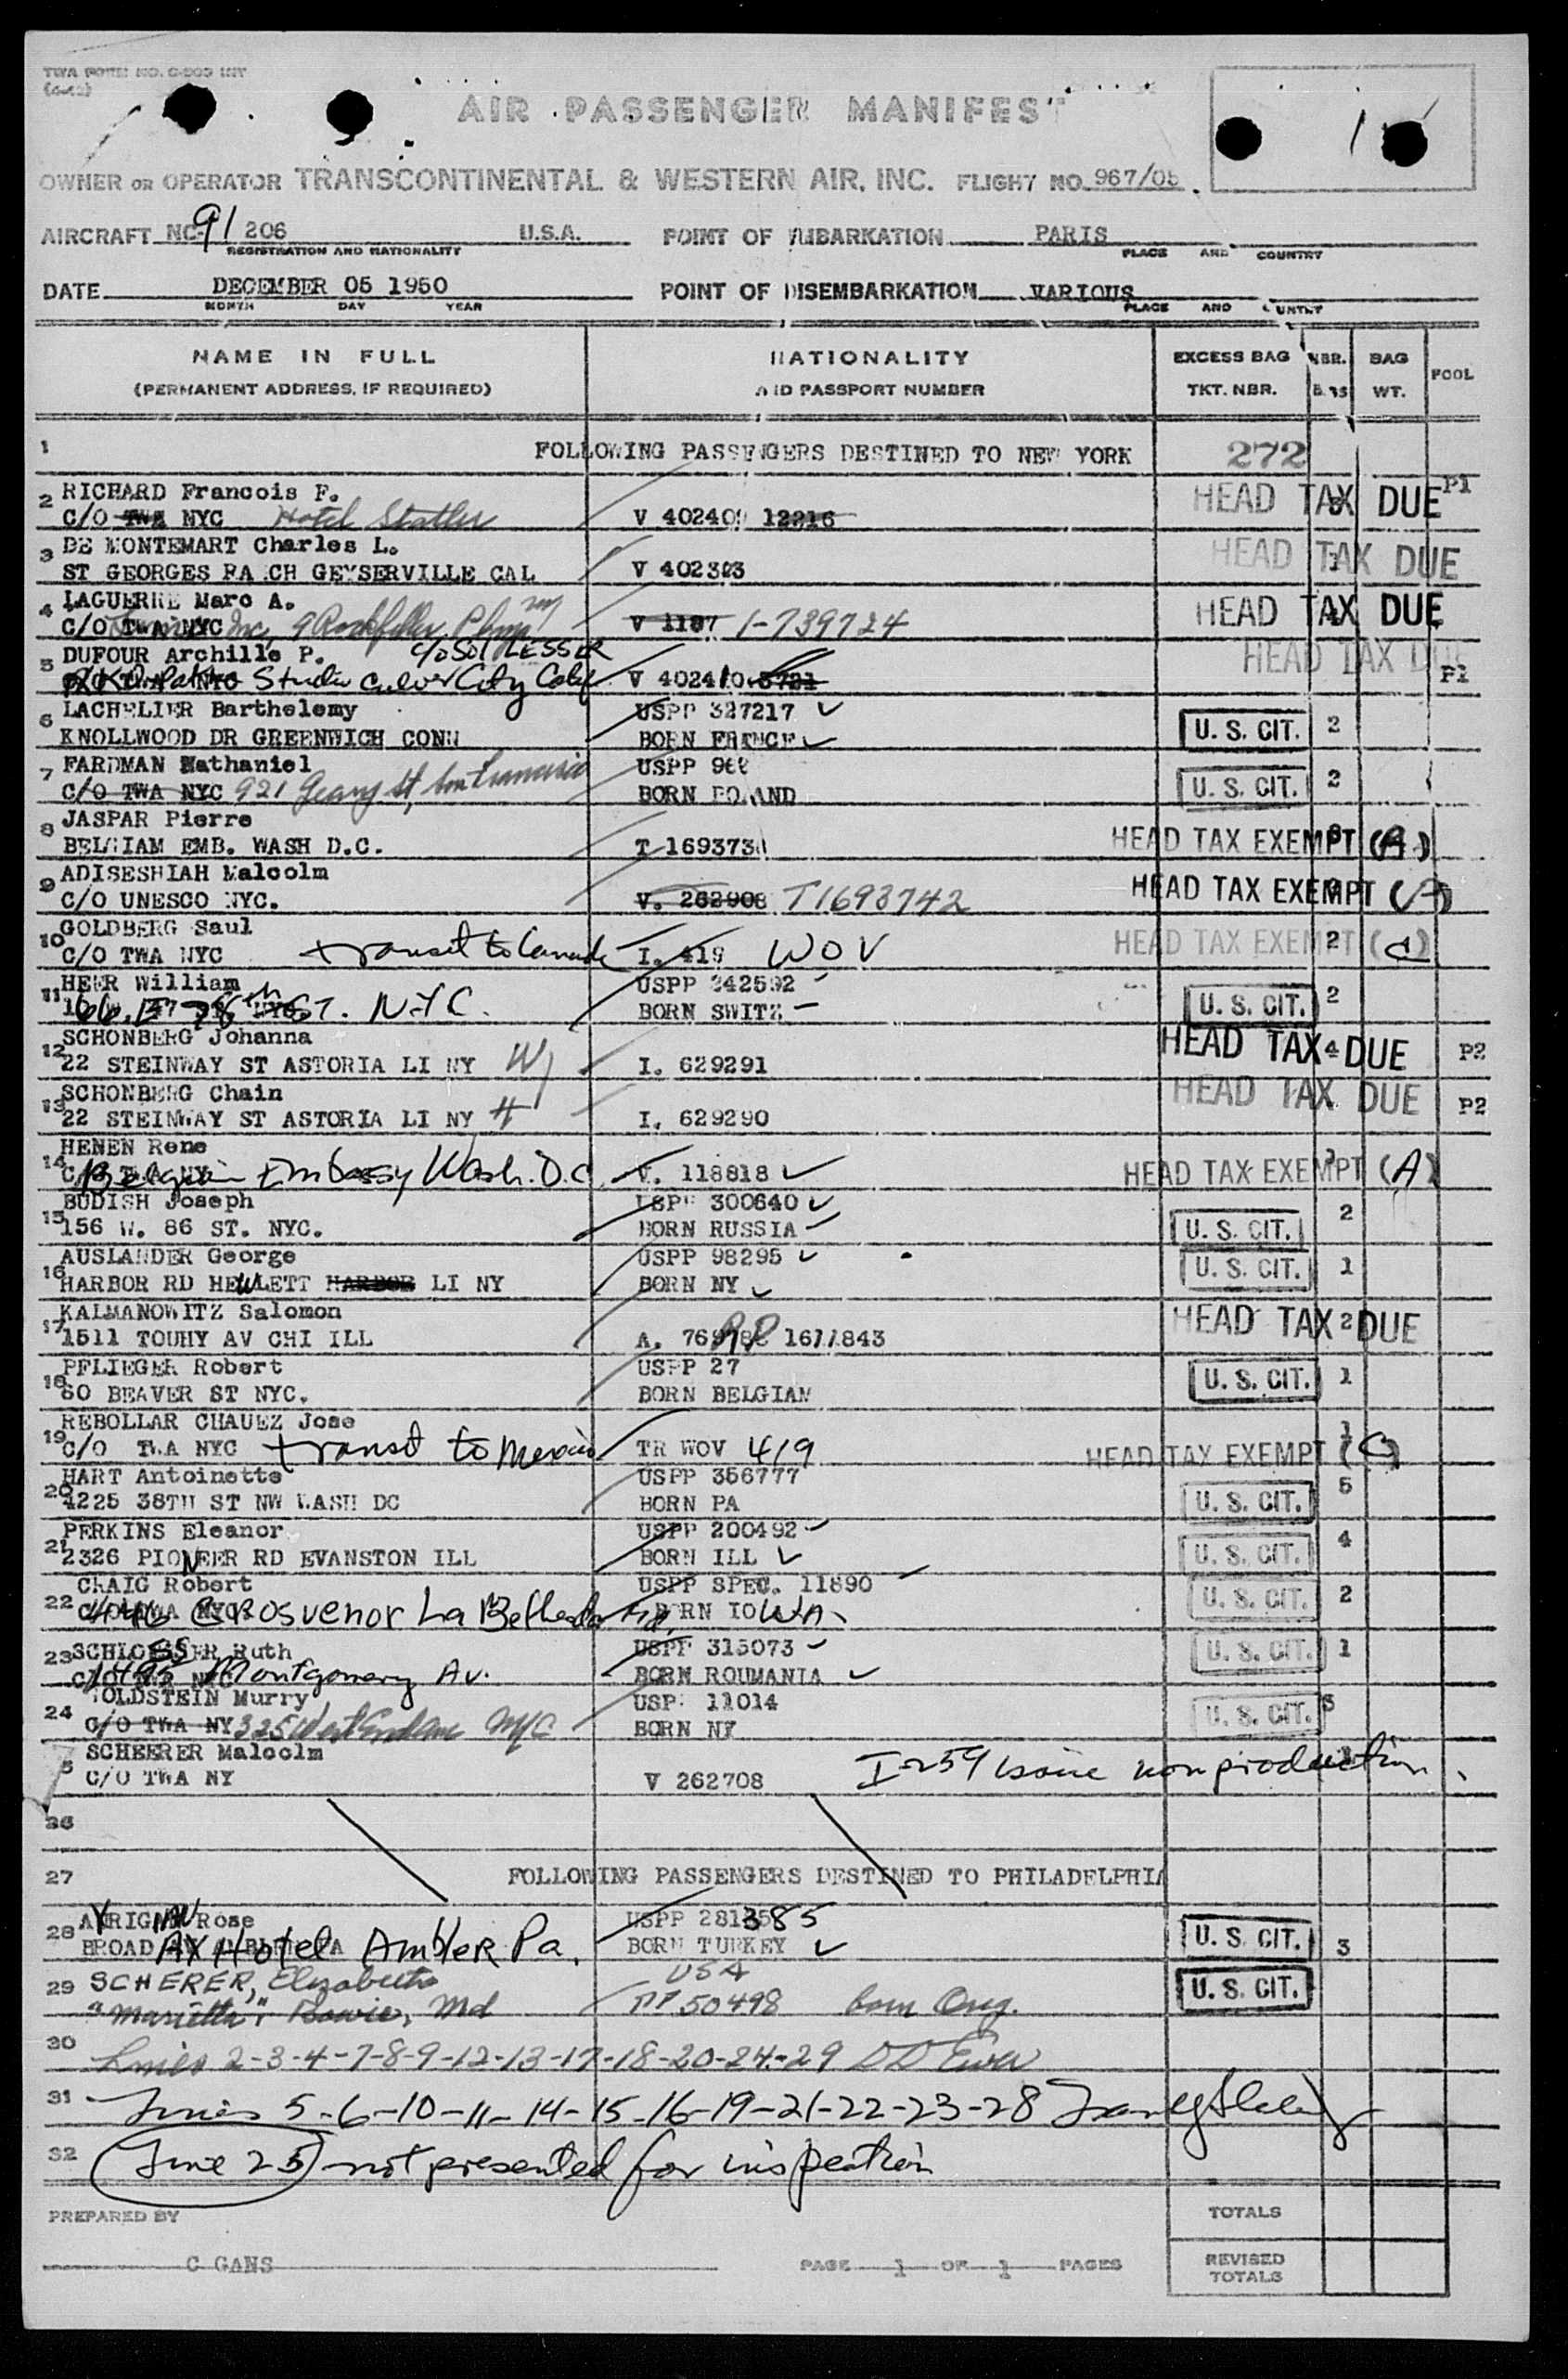 TWA FORM NO.
AIR PASSENGER MANIFEST
1
OWNER OR OPERATOR TRANSCONTINENTAL & WESTERN AIR, INC. FLIGHT NO. 967/05
AIRCRAFT NC-91206 U.S.A. POINT OF EMBARKATION PARIS
REGISTRATION AND NATIONALITY PLACE AND COUNTRY
DATE DECEMBER 05 1950 POINT OF DISEMBARKATION VARIOUS
MONTH DAY YEAR PLACE AND COUNTRY
NAME IN FULL NATIONALITY EXCESS BAG NBR. BAG POOL
(PERMANENT ADDRESS, IF REQUIRED) AND PASSPORT NUMBER TKT. NBR. WT.
1 FOLLOWING PASSENGERS DESTINED TO NEW YORK 272
2 RICHARD Francois F. HEAD TAX DUE P1
C/O TWA NYC Hotel Statler V 402409 12216
3 DE MONTEMART Charles L. HEAD TAX DUE
ST GEORGES RANCH GEYSERVILLE CAL V 402303
4 LAGUERRE Marc A. HEAD TAX DUE
C/O TWA NYC Inc, 9 V 1187 1-739724
5 DUFOUR Archille P. c/o SOL LESSER HEAD TAX DUE
Studio Culver City Calif V 402410 P1
6 LACHELIER Barthelemy USPP 327217 U. S. CIT. 2
KNOLLWOOD DR GREENWICH CONN BORN FRANCE
7 FARDMAN Nathaniel USPP U. S. CIT. 2
C/O TWA NYC 921 Geary St, San Francisco BORN POLAND
8 JASPAR Pierre HEAD TAX EXEMPT (A)
BELGIAM EMB. WASH D.C. T 169373
9 ADISESHIAH Malcolm HEAD TAX EXEMPT (A)
C/O UNESCO NYC. V. 262908 T1693742
10 GOLDBERG Saul HEAD TAX EXEMPT (C) 2
C/O TWA NYC transit to Canada I. 419 WOV
11 HEER William USPP 342592 U. S. CIT. 2
166 E 78th ST. NYC. BORN SWITZ
12 SCHONBERG Johanna HEAD TAX DUE 4 P2
22 STEINWAY ST ASTORIA LI NY W I. 629291
13 SCHONBERG Chain HEAD TAX DUE
22 STEINWAY ST ASTORIA LI NY H I. 629290 P2
14 HENEN Rene HEAD TAX EXEMPT (A)
Belgian Embassy Wash. D.C. V. 118818
15 BUDISH Joseph USPP 300640 U. S. CIT. 2
156 W. 86 ST. NYC. BORN RUSSIA
16 AUSLANDER George USPP 98295 U. S. CIT. 1
HARBOR RD HEWLETT HARBOR LI NY BORN NY
17 KALMANOWITZ Salomon HEAD TAX DUE 2
1511 TOUHY AV CHI ILL A. RP 1611843
18 PFLIEGER Robert USPP 27 U. S. CIT. 1
60 BEAVER ST NYC. BORN BELGIAN
19 REBOLLAR CHAUEZ Jose HEAD TAX EXEMPT (C) 1
C/O TWA NYC transit to Mexico TR WOV 419
20 HART Antoinette USPP 356777 U. S. CIT. 5
4225 38TH ST NW WASH DC BORN PA
21 PERKINS Eleanor USPP 200492 U. S. CIT. 4
2326 PIONEER RD EVANSTON ILL BORN ILL
22 CRAIG Robert USPP SPEC. 11890 U. S. CIT. 2
Grosvenor La Bethesda Md. BORN IOWA
23 SCHLOESSER Ruth USPP 315073 U. S. CIT. 1
Montgomery Av. BORN ROUMANIA
24 GOLDSTEIN Murry USPP 11014 U. S. CIT. 3
C/O TWA NY 325 West End Ave NYC BORN NY
25 SCHEERER Malcolm
C/O TWA NY V 262708 I-259 issue nonproduction.
26
27 FOLLOWING PASSENGERS DESTINED TO PHILADELPHIA
28 Rose USPP 281385 U. S. CIT. 3
BROAD AX Hotel Ambler Pa. BORN TURKEY
29 SCHERER, Elizabeth USA U. S. CIT.
"Marietta", Bowie, Md PP 50498 born Oreg.
30 Lines 2-3-4-7-8-9-12-13-17-18-20-24-29
31 Lines 5-6-10-11-14-15-16-19-21-22-23-28
32 Line 25 not presented for inspection
PREPARED BY TOTALS
C GANS PAGE 1 OF 1 PAGES REVISED TOTALS